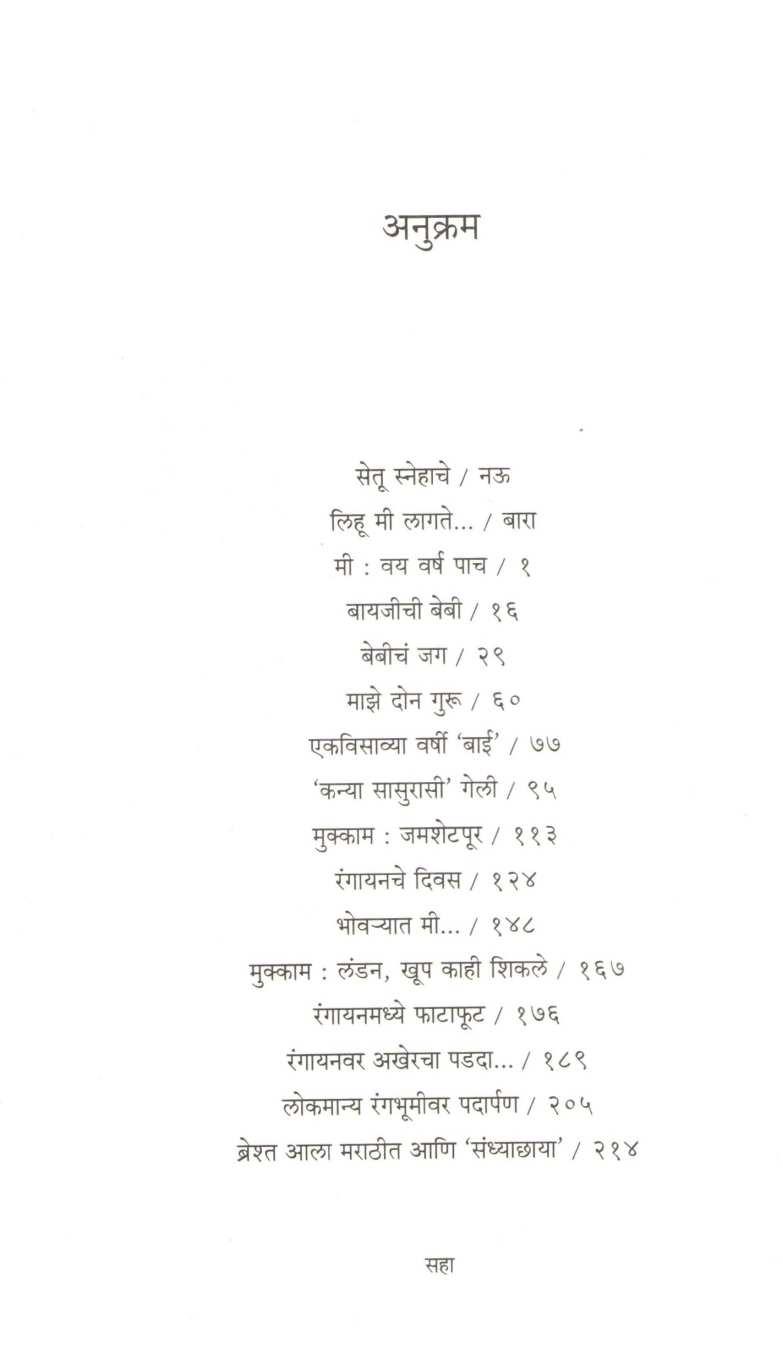 अनुक्रम
सेतू स्नेहाचे / नऊ
लिहू मी लागते... / बारा
मी : वय वर्ष पाच / १
बायजीची बेबी / १६
बेबीचं जग / २९
माझे दोन गुरू / ६०
एकविसाव्या वर्षी ‘बाई’ / ७७
‘कन्या सासुरासी’ गेली / ९५
मुक्काम : जमशेटपूर / ११३
रंगायनचे दिवस / १२४
भोवऱ्यात मी... / १४८
मुक्काम : लंडन, खूप काही शिकले / १६७
रंगायनमध्ये फाटाफूट / १७६
रंगायनवर अखेरचा पडदा... / १८९
लोकमान्य रंगभूमीवर पदार्पण / २०५
ब्रेश्त आला मराठीत आणि ‘संध्याछाया’ / २१४
सहा